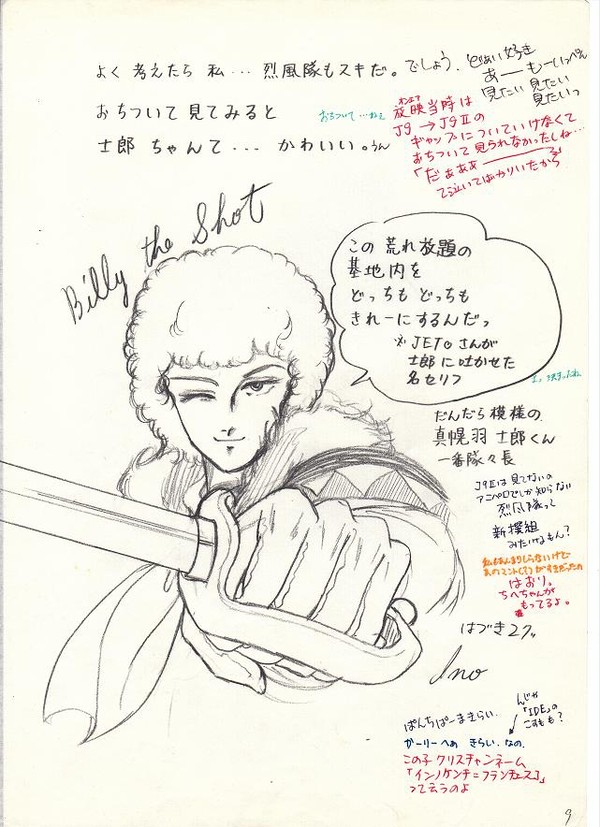 よく 考えたら 私… 烈風隊もスキだ。でしょう.
おちついて 見てみると
士郎 ちゃんて… かわいい。うん
おちついて…ねェ
どぁい好き
あーーもーいっぺん
見たい 見たい
見たいっ
放映当時は
J9→J9Ⅱの
ギャップについていけなくて
おちついて見られなかったしね…
「だぁあぁ
て泣いてばかりいたから
Billy the Shot
この 荒れ放題の
基地内を
どっちも どっちも
きれーにするんだっ
※ JETOさんが
士郎に吐かせた
名セリフ
だんだら模様の
真幌羽 士郎くん
一番隊々長
J9Ⅱは見てないの
アニペロでしか知らない
烈風隊って
新撰組
みたいけなもん?
はおり。
ちへちゃんが
もってるよ。
はづき27ッ
Ino
ぱんちぱーまきらい..
かーりーへぁ きらい.なの.
んじゃ
「IDE」の
こすもも?
この子 クリスチャンネーム
「インノケンチ=フランチェスコ」
って云うのよ
9